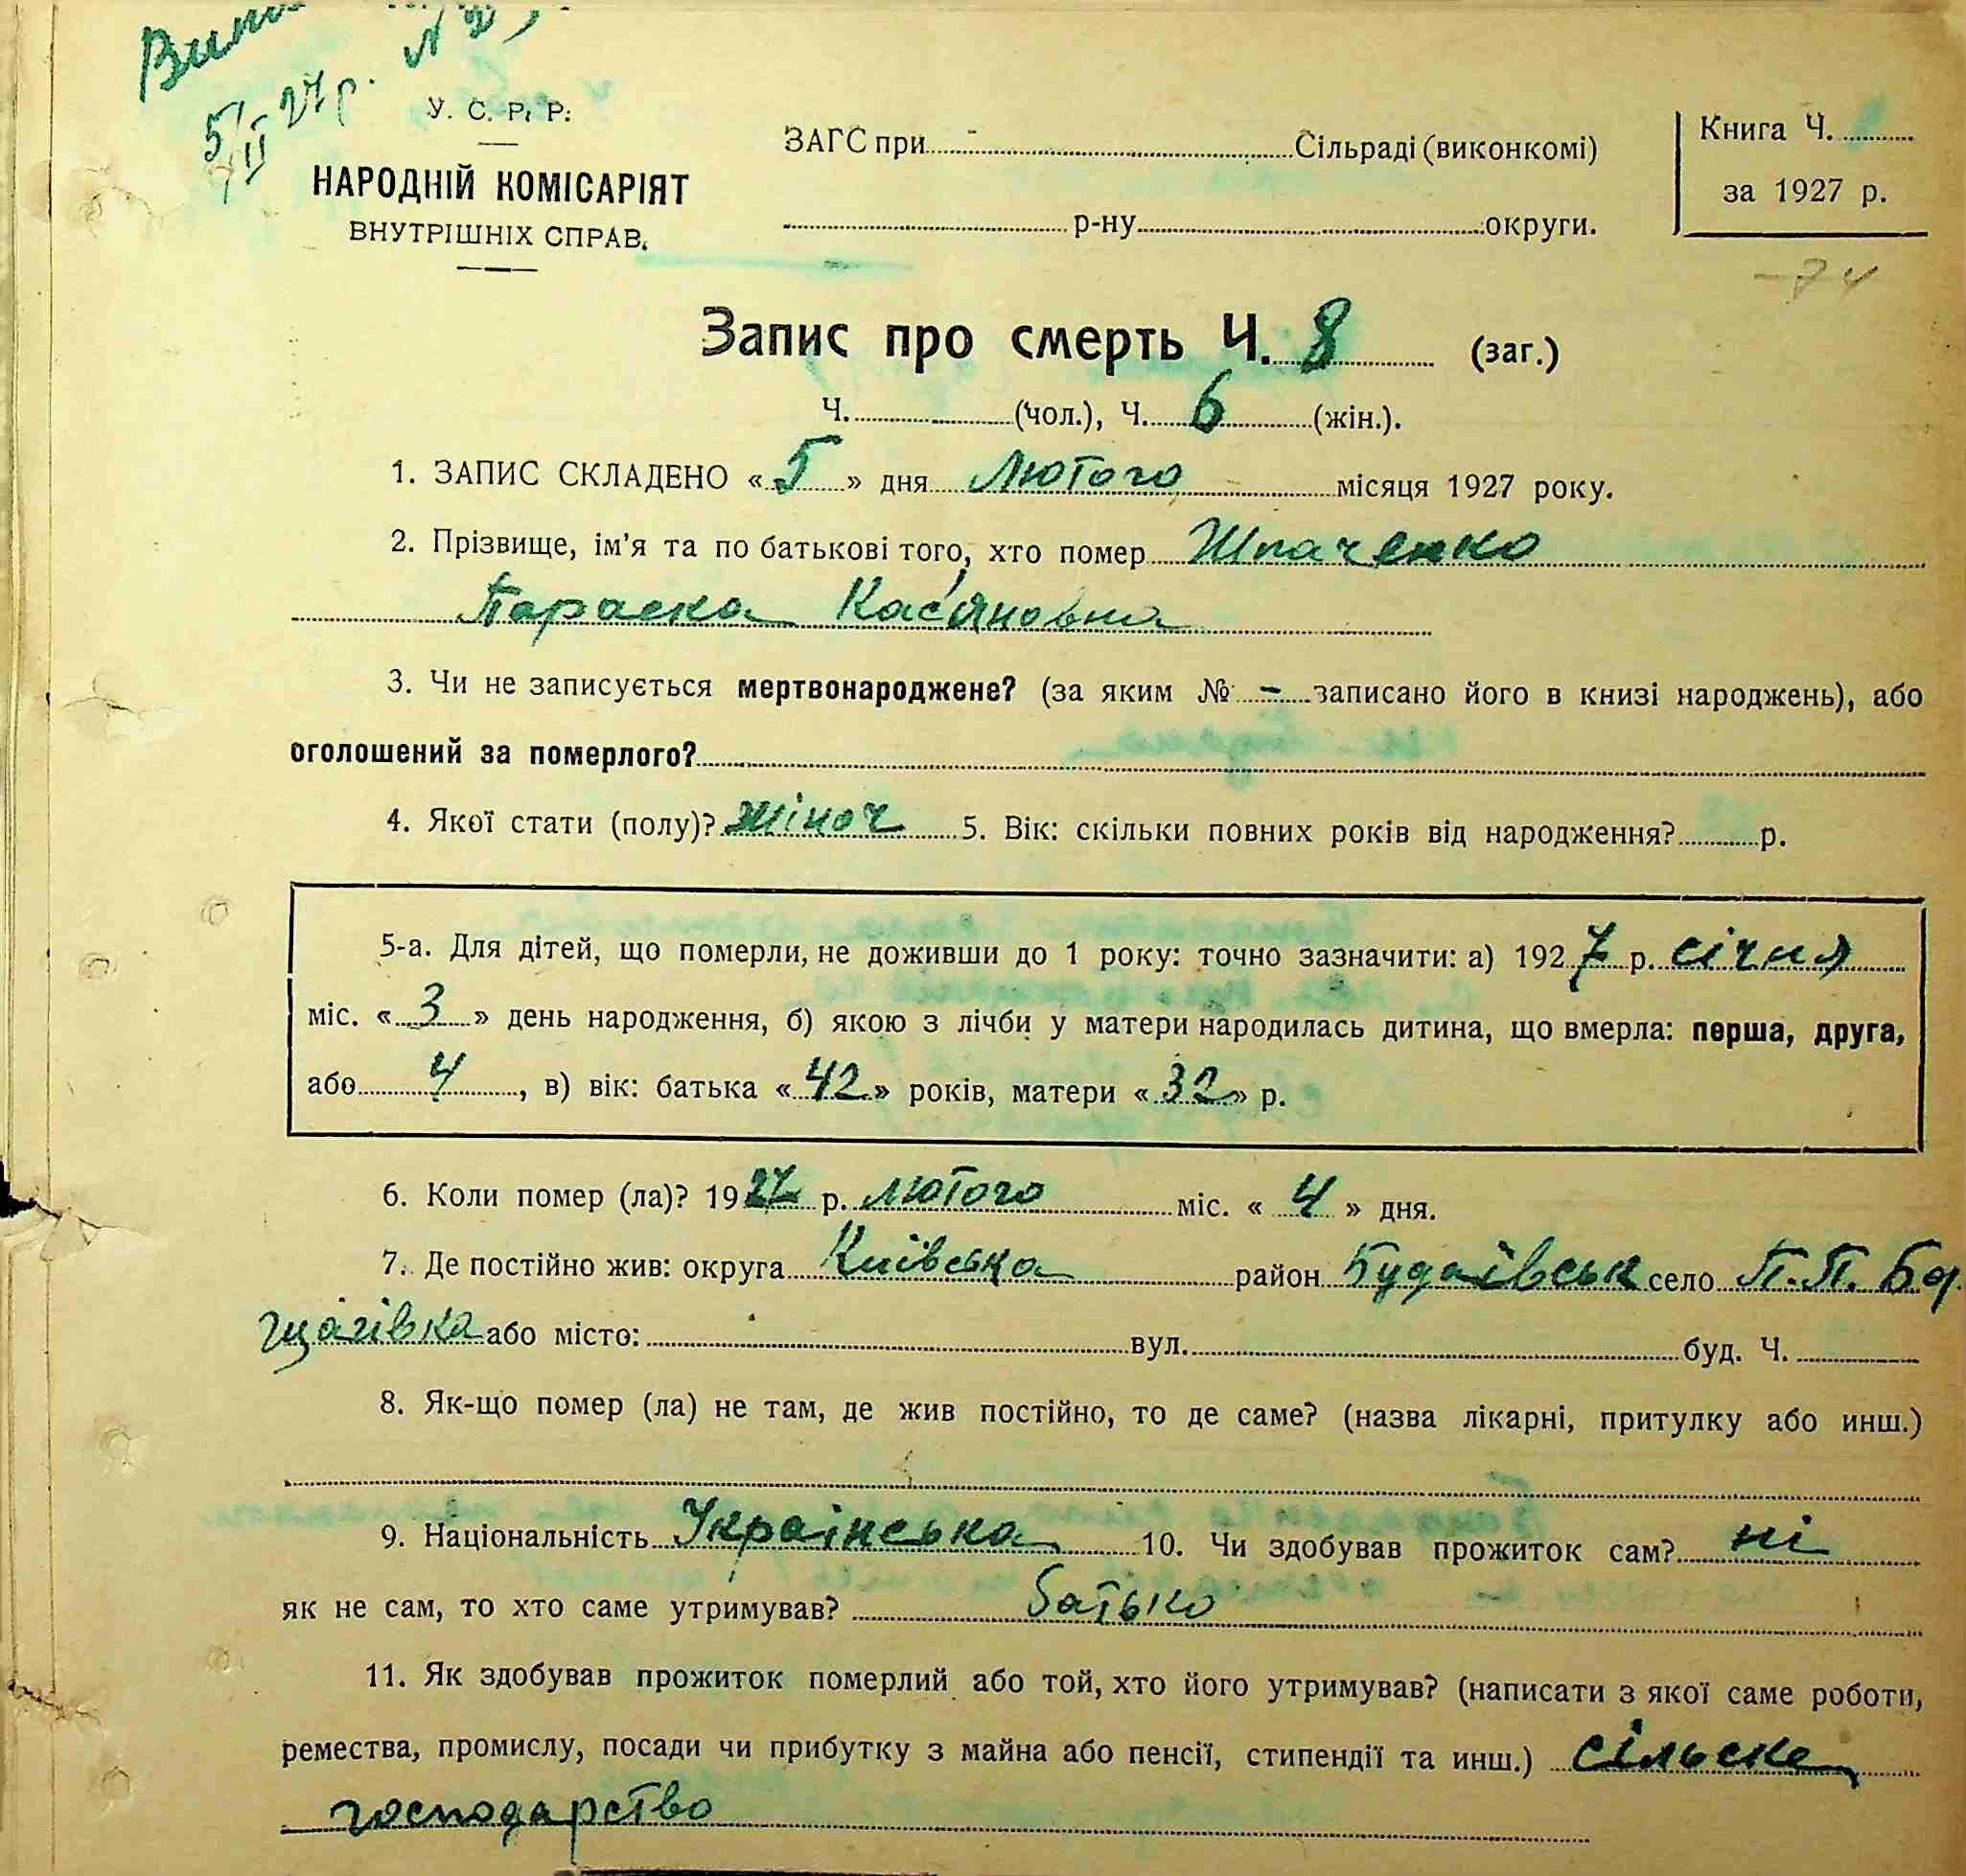 5/II 27 р. №
У. С. Р. Р.
НАРОДНІЙ КОМІСАРІЯТ
ВНУТРІШНІХ СПРАВ.
ЗАГС при Сільраді (виконкомі)
р-ну округи.
Книга Ч.
за 1927 р.
74
Запис про смерть Ч. 8 (заг.)
Ч. (чол.), Ч. 6 (жін.).
1. ЗАПИС СКЛАДЕНО «5» дня Лютого місяця 1927 року.
2. Прізвище, ім'я та по батькові того, хто помер Шпаченко
Параска Касьяновна
3. Чи не записується мертвонароджене? (за яким № - записано його в книзі народжень), або
оголошений за померлого?
4. Якої стати (полу)? жіноч 5. Вік: скільки повних років від народження? р.
5-а. Для дітей, що померли, не доживши до 1 року: точно зазначити: а) 1927 р. січня
міс. «3» день народження, б) якою з лічби у матери народилась дитина, що вмерла: перша, друга,
або 4, в) вік: батька «42» років, матери «32» р.
6. Коли помер (ла)? 1927 р. лютого міс. «4» дня.
7. Де постійно жив: округа Київська район Будаївськ село П.П. Бор
щагівка або місто: вул. буд. Ч.
8. Як-що помер (ла) не там, де жив постійно, то де саме? (назва лікарні, притулку або инш.)
9. Національність Українська 10. Чи здобував прожиток сам? ні
як не сам, то хто саме утримував? батько
11. Як здобував прожиток померлий або той, хто його утримував? (написати з якої саме роботи,
ремества, промислу, посади чи прибутку з майна або пенсії, стипендії та инш.) сільске
господарство